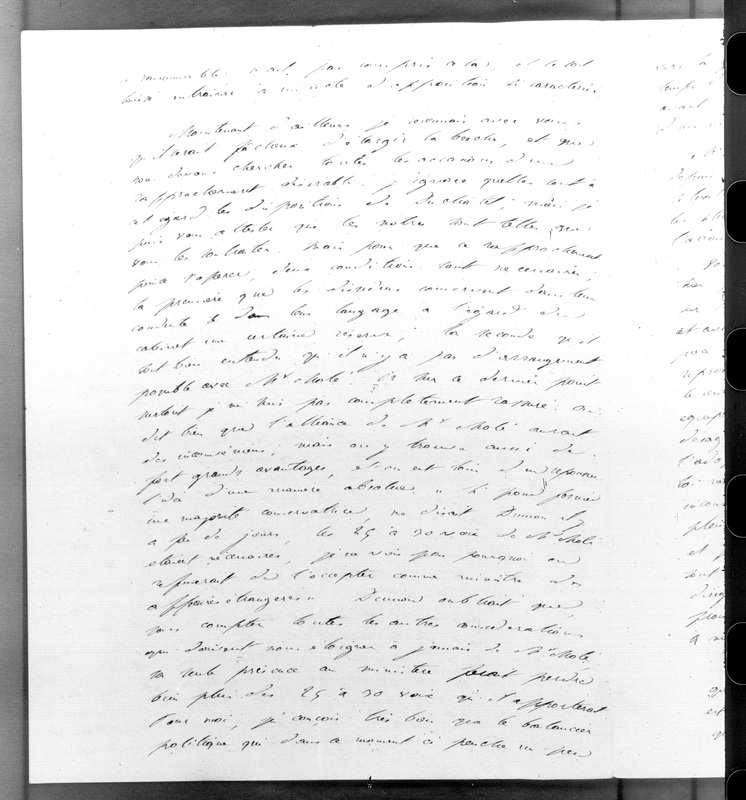 raisonnable n'ont pas compris cela, et se sont
laissé entrainer à un acte d'opposition si caractérisé
Maintenant d'ailleurs je reconnais avec vous
qu'il serait fâcheux d'élargir la brèche, et que
nous devons chercher toutes les occasions d'un
rapprochement désirable. j'ignore quelles sont à
cet égard les dispositions de Duchatel; mais je
puis vous attester que les notres sont telles que
vous les souhaitez. Mais pour que ce rapprochement
puisse s'opérer, deux conditions sont nécessaires,
la première que les dissidens conservent dans leur
conduite et dans leur langage à l'égard du
cabinet une certaine réserve; la seconde qu'il
soit bien entendu qu'il n'y a pas d'arrangement
possible avec Mr Molé. Or sur ce dernier point
surtout je ne suis pas complètement rassuré. On
dit bien que l'alliance de Mr Molé aurait
des inconvéniens, mais on y trouve aussi de
fort grands avantages, et on est loin d'en repousser
l'idée d'une manière absolue. "Si pour former
une majorité conservatrice, me disait Dumon il y
a peu de jours, les 25 à 30 voix de Mr Molé
étaient nécessaires, je ne vois pas pourquoi on
refuserait de l'accepter comme ministre des
affaires étrangères." Dumon oubliait que,
sans compter toutes les autres considérations
qui doivent nous éloigner à jamais de Mr Molé,
sa seule présence au ministère ferait perdre
bien plus des 25 à 30 voix qu'il apporterait
Pour moi, je conçois très bien que le balancier
politique qui dans ce moment ci penche un peu